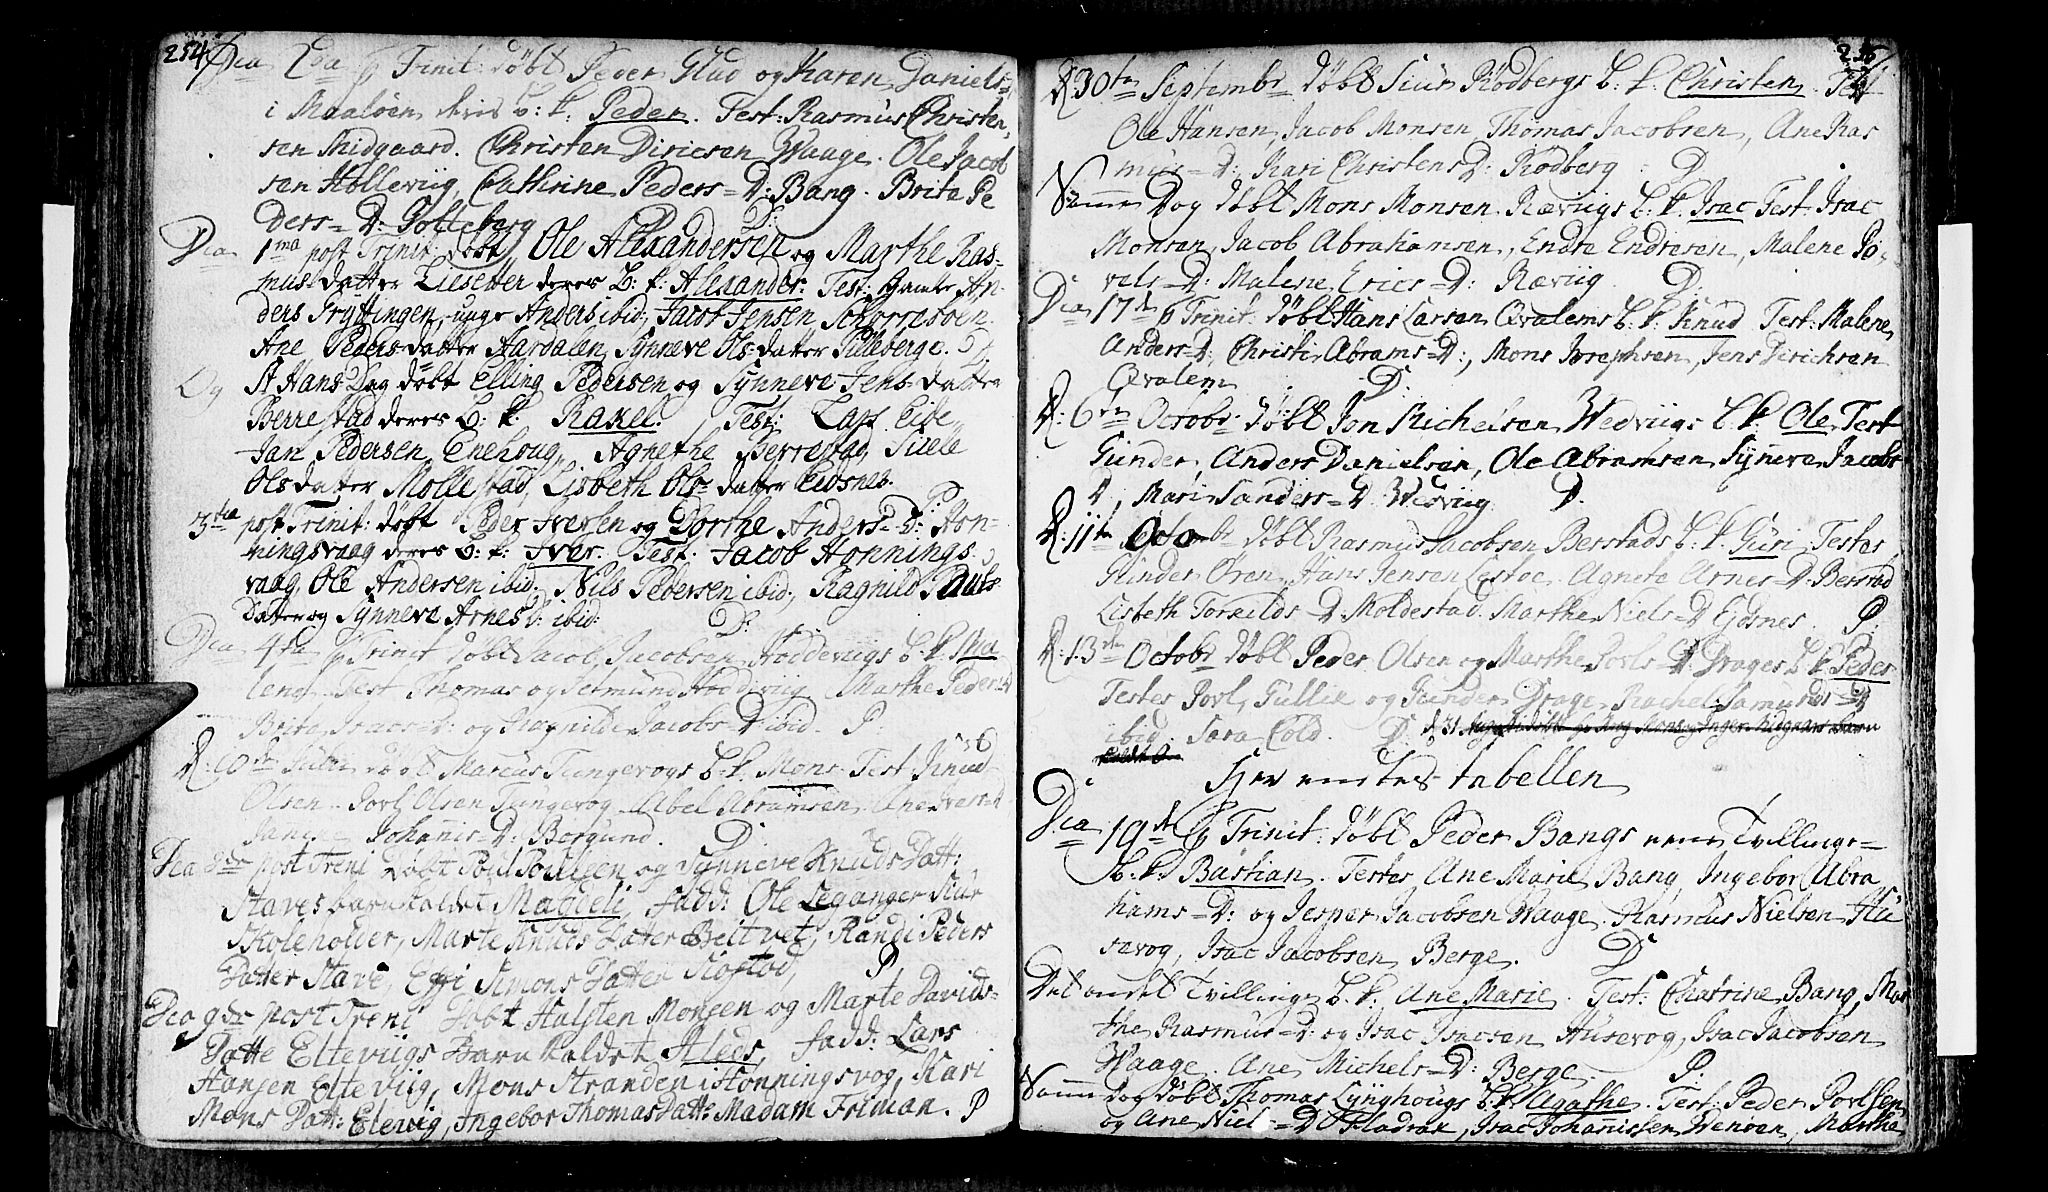 254
Dia 2da p Trinit: døbt Peder Glud og Karen Daniels=
i Maaløen deris b: k: Peder. Test: Rasmus Christen,
sen Midgaard. Christen Diricsen Waage. Ole Jacob
sen Hølleviig, Cathrine Peders=D: Bang. Brite Pe
ders=D: Gotteberg D:
Dia 1ma post Trinit: døbt Ole Alexandersen og Marthe Ras-
mus datter Liesetter deres b: k: Alexander. Test: Gamle An-
ders Fryttingen, unge Anders ibid, Jacob Jensen
Ane Peders datter Aardalen, Synneve Ols datter Pilleberge. D.
Og St Hans Dag døbt Elling Pedersen og Synneve Jens datter
Berrestad deres b: k: Rakel. Test: Lars Eide
Jan Pedersen Enehoug, Agnethe Berrestad, Siele
Olsdatter Mollestad, Lisbeth Ols datter Eidsnes.
3tia post Trinit: døbt Peder Iversen og Dorthe Anders D: Hon-
ningsvaag deres b: k: Iver. Test. Jacob Honnings
vaag, Ole Andersen ibid: Nils Pedersen ibid:, Ragnild Pauls
Datter og Synneve Arnes D: ibid: D:
Dia 4ta p Trinit døbt Jacob Jacobsen Hoddeviigs b. k. Ma
lene. Test Thomas og Jetmund Hoddeviig Marthe Peders D
Brite Isacs=D: og Ragnilde Jacobs D ibid. P.
D: 10de Julii døbt Marcus Tungevogs b. k. Mons. Test Knud
Olsen. Povl Olsen Tungevog. Abel Abramsen, Ane Ivers=D
Johannis=D: Borgund. D.
Dia 8de post Treni Døbt Poul Poulsen og Synneve Knuds Datt:
Staves barn kaldet Magdeli, fadd: Ole Leganger
Skoleholder, Marte Knuds Datter Beltvet, Randi Peders
Datter Stave, Eggi Simons Datter P
Dia 9de post Treni Døbt Halsten Monsen og Marte Davids=
Datte Elteviigs Barn kaldet Aleds, fadd: Lars
Hansen Elteviig, Mons Stranden i Honningsvog, Kari
Mons Datt: Eleviig, Ingebor Thomas Datt: Madam Friman. P
255
D: 30te Septembr døbt Siur Rødbergs b. k. Christen. Test
Ole Hansen, Jacob Monsen, Thomas Jacobsen, Ane Ras
mus=D: Kari Christens D: Rødberg D
Samme Dag døbt Mons Monsen Ræviigs b. k. Isac Test Isac
Monsen, Jacob Abrahamsen, Endre Endresen, Malene Po-
vels=D: Malene Erics=D: Ræviig D.
Dia 17de p Trinit. døbt Hans Larsen Qvalems b. k. Knud Test: Malene
Anders=D:, Christi Abrams=D:, Mons Josephsen, Jens Dirichsen
Qvalem D:
D: 6te Octobr: døbt Jon Michelsen Wedviigs b. k. Ole Test
Gunder, Anders Danielsen, Ole Abramsen Syneva Jacobs
D, Mari Sanders=D: Wedviig D.
D: 11te Octobr døbt Rasmus Jacobsen Berstads b. k. Guri, Testes
Gunder Øren, Hans Jensen Lestoe. Agnete Arnes=D. Berstad
Lisbeth Torkilds=D: Moldestad. Marthe Niels=D Ejdsnes. P.
D: 13de Octobr døbt Peder Olsen og Marthe Povls=D. Drages b. k. Peder
Testes Povl, Gullik og Gunder Drage, Rachel Samunds=D
ibid Sara Cold. D:
Her endtes tabellen
Dia 19de p Trinit: døbt Peder Bangs eene Tvillinge=
b. k. Bastian. Testes, Ane Marie Bang, Ingebor Abra
hams=D: og Jesper Jacobsen Waage. Rasmus Nielsen Hu
sevog, Isac Jacobsen Berge. D
Det andet Tvillinge b. k. Ane Marie. Test: Chatrine Bang, Mar
the Rasmus=D: og Isac Isacsen Husevog, Isac Jacobsen
Waage. Ane Michels=D: Berge P:
Samme dag døbt Thomas Lynghougs b. k. Agathe. Test: Peder Povlsen
og Ane Niels=D Fladrae, Isac Johannissen Wenøen, Marthe